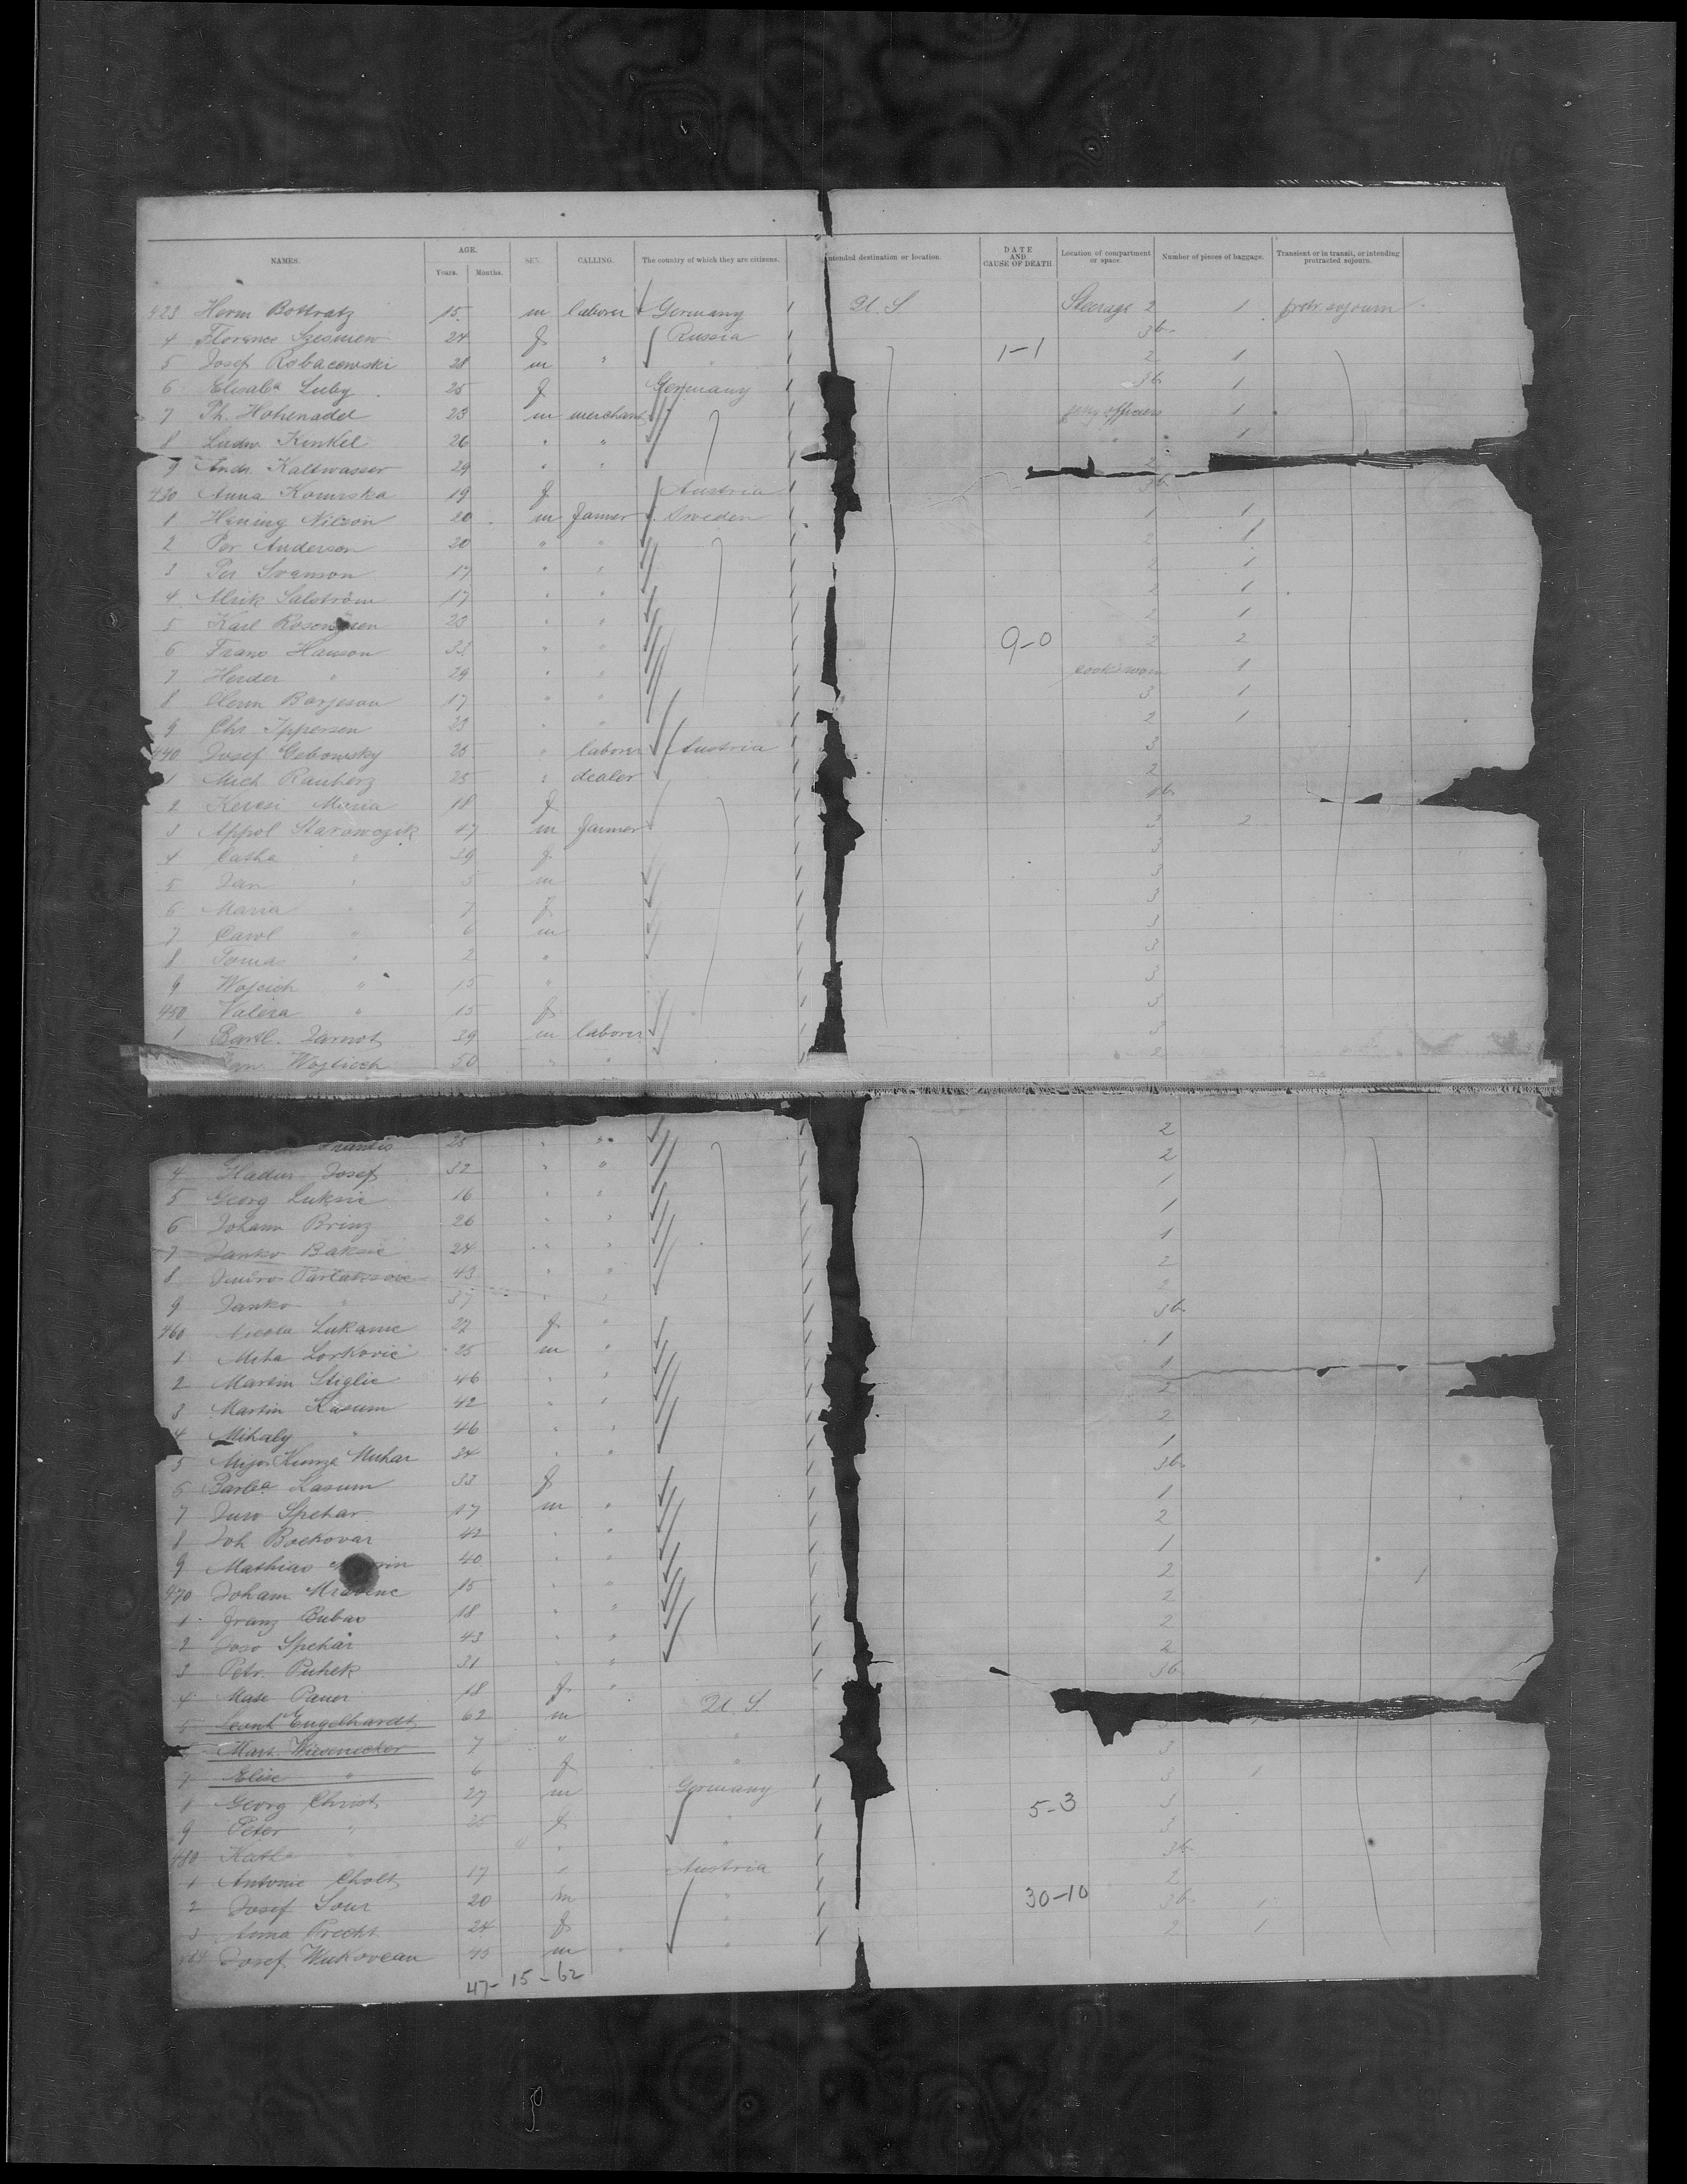 NAMES. AGE. Years. Months. SEX. CALLING. The country of which they are citizens. Intended destination or location. DATE AND CAUSE OF DEATH Location of compartment or space. Number of pieces of baggage. Transient or in transit, or intending protracted sojourn.
423 Herm Bottratz 15 m laborer Germany U.S. Steerage 2 1 protr. sojourn
4 Florence 24 f Russia 3b
5 Josef Robacowski 28 m " " 1-1 2 1
6 Elisab. Luby 25 f Germany 3b 1
7 Ph. Hohenadel 23 m merchant officers 1
8 Ludw. Kinkel 26 " " " " 1
9 Andr. Kaltwasser 29 " " 2
430 Anna Komrska 19 f Austria 3b
1 Hening Nilson 20 m farmer Sweden 1 1
2 Per Anderson 20 " " 2 1
3 Per Svenson 17 " " 2 1
4 Alrik Salström 17 " " 2 1
5 Karl 23 " " 2 1
6 Frans Hanson 33 " " 9-0 2 2
7 Herder " 29 " " cooksroom 1
8 Borjeson 17 " " 3 1
9 Chr. Ippersen 23 " " 2 1
440 Josef Cebowsky 25 " laborer Austria 3
1 Mich Rauberz 25 " dealer 2
2 Keresi Maria 18 f 1b
3 Appol Starowczik 47 m farmer 3 2
4 Casha " 39 f 3
5 Jan " 5 m 3
6 Maria " 7 f 3
7 Carol " 6 m 3
8 Tomas " 2 " 3
9 Wojcich " 15 " 3
450 Valera " 15 f 3
1 Bartl. Jarnot 39 m laborer 3
Wojtiech 50 " " 2
Frantis 25 " " 2
4 Hadur Josef 32 " " 2
5 Georg Luksic 16 " " 1
6 Johann Brinz 26 " " 1
7 Janko Baksic 24 " " 1
8 43 " " 2
9 Janko " 37 " " 2
460 Nicola Lukanic 27 f " 3b
1 Miha Lorkovic 25 m " 1
2 Martin Stiglic 46 " " 1
3 Martin Kasum 42 " " 2
4 Mihaly " 46 " " 2
5 Mijo Muhar 34 " " 1
6 Barba Kasum 33 f 3b
7 Juro Spehar 17 m " 1
8 Joh Bockovar 42 " " 2
9 Mathias 40 " " 1
470 Johann 15 " " 2 1
1 Franz Bubas 18 " " 2
2 Joso Spehar 43 " " 2
3 Petr. Puhek 31 " " 2
4 Mate Pauer 18 f " 3b
5 Leonh Engelhardt 62 m U.S.
Marx. Wiesnecker 7 " " 3
7 Elise " 6 f " 3
8 Georg Christ 27 m Germany 3 1
9 Peter " 25 f " 5-3 3
480 Kath " " " 3
1 Antonie Cholt 17 " Austria 3b
2 Josef Sour 20 m " 30-10 2
3 Anna Precht 24 f " 3b 1
484 Josef Wukovcan 45 m " " 2 1
47-15-62